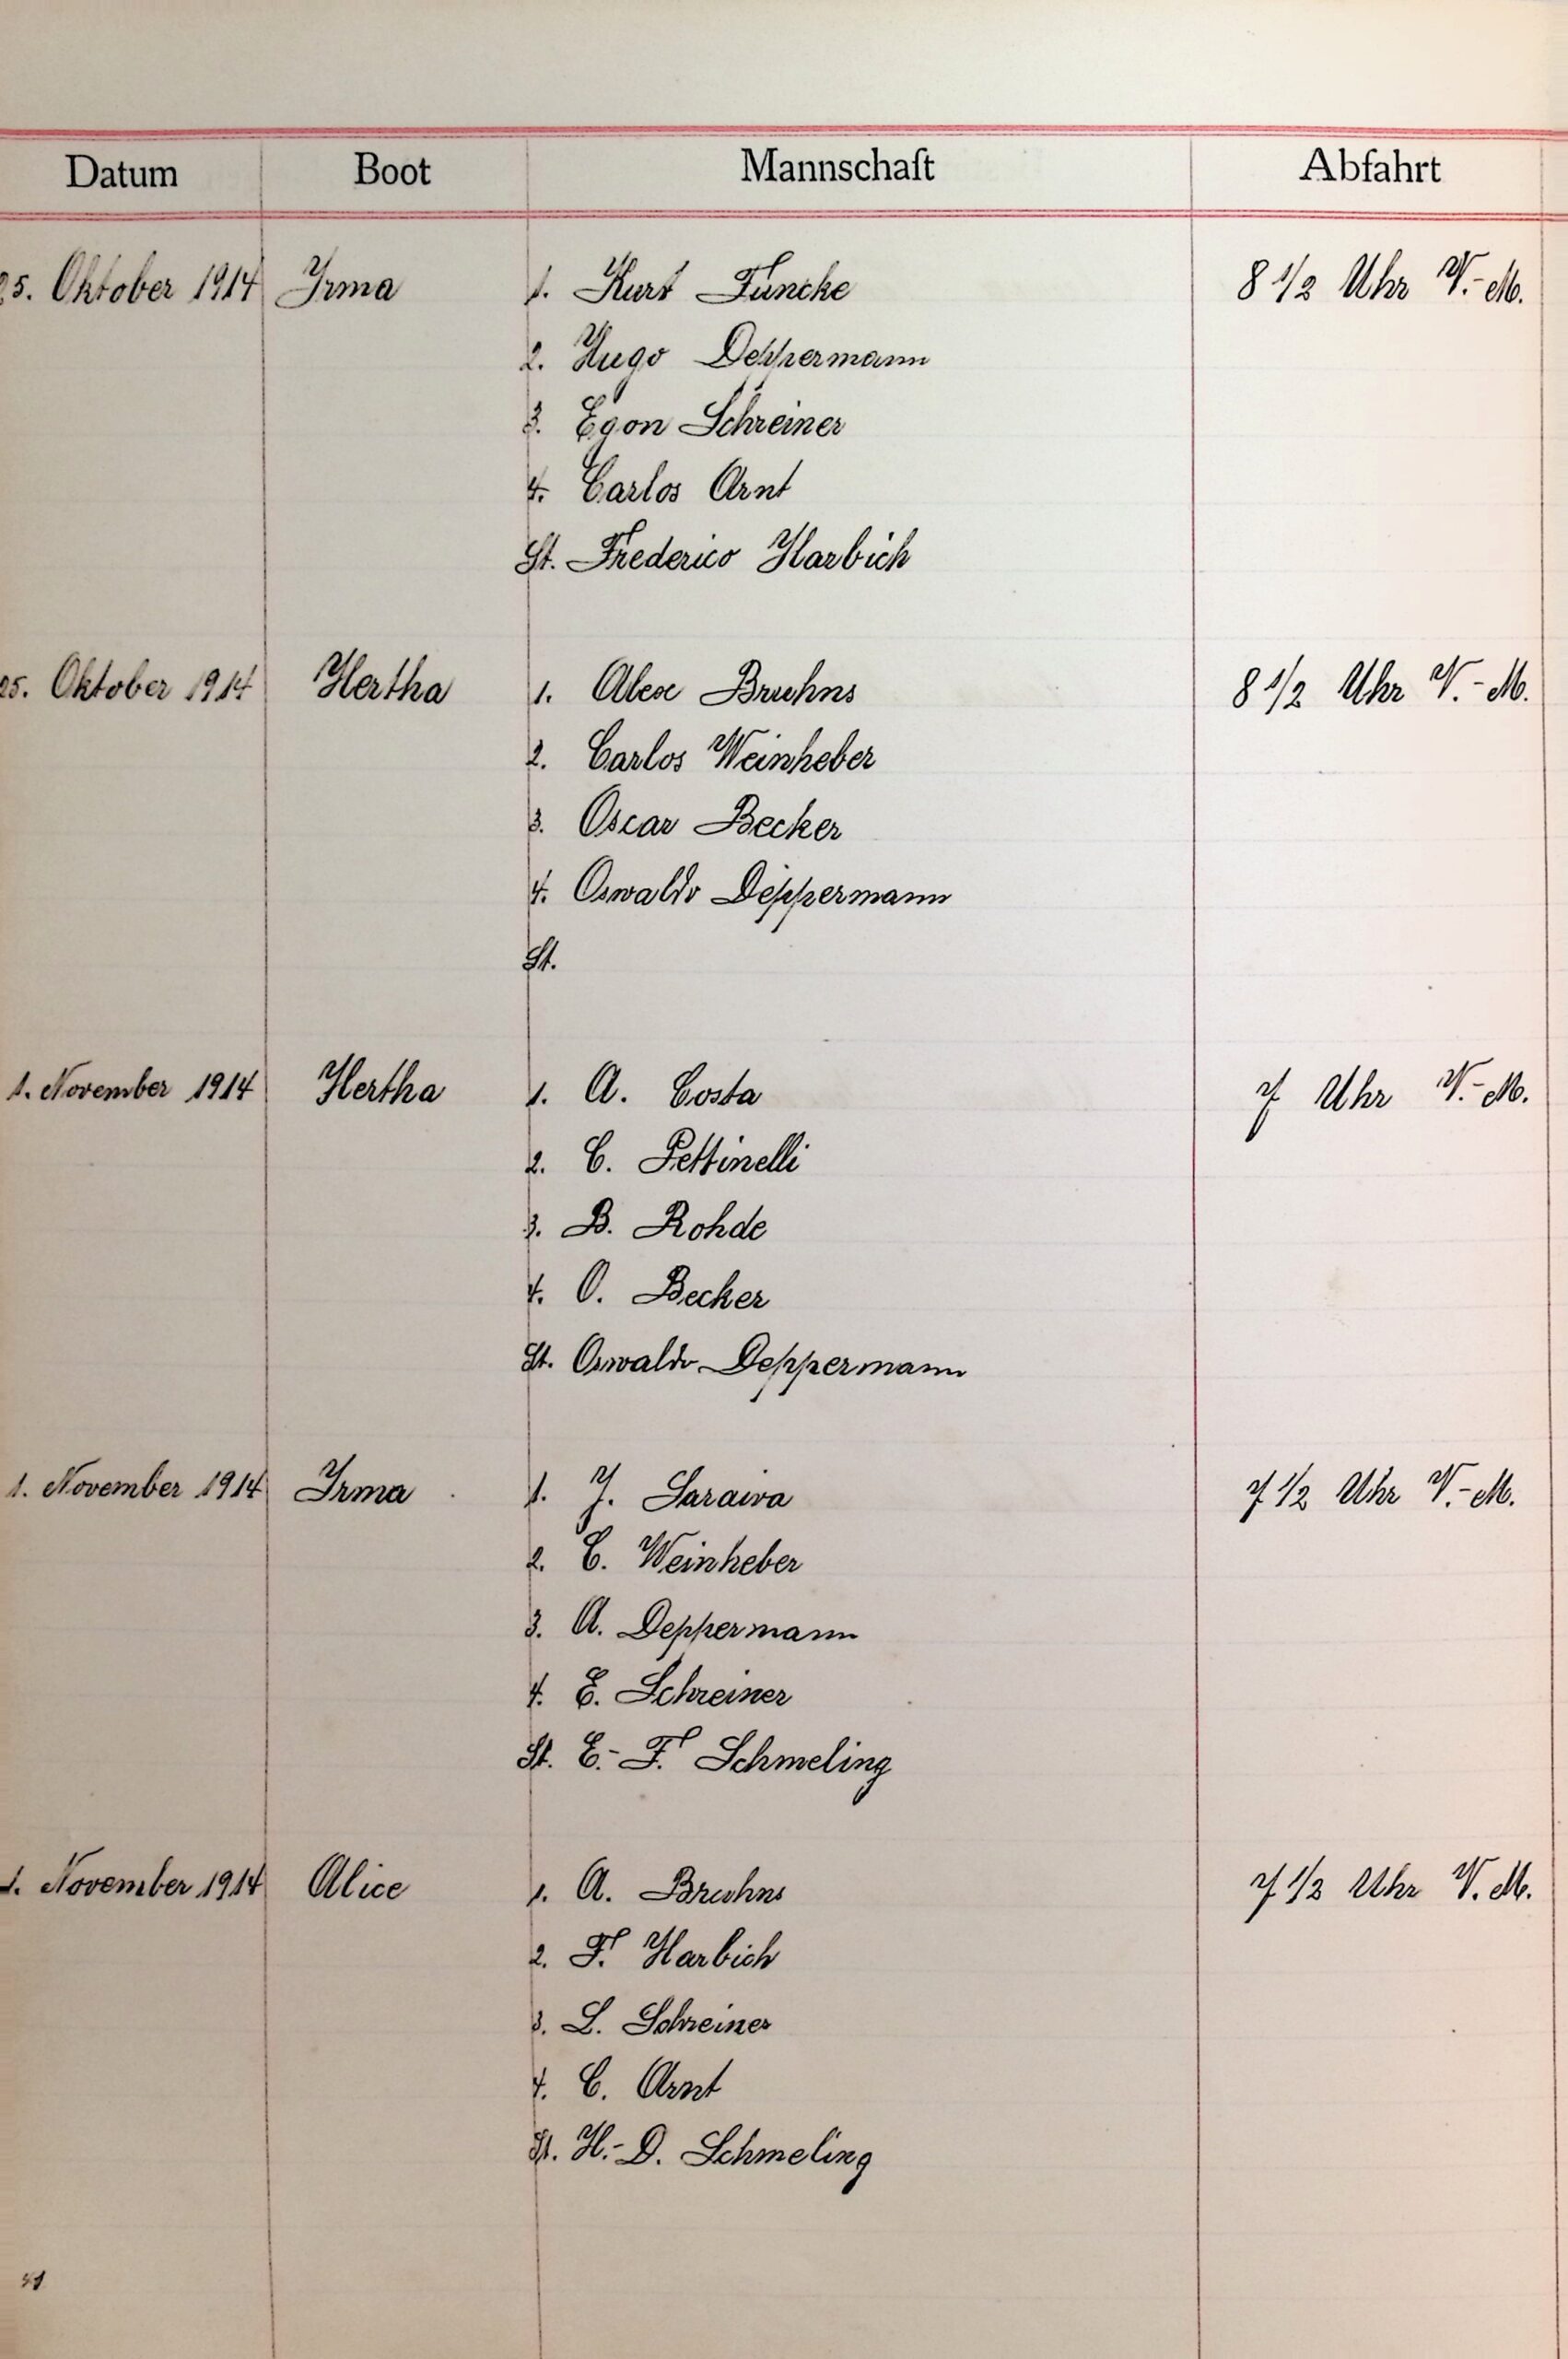 Datum Boot Mannschaft Abfahrt
25. Oktober 1914 Irma 1. Kurt Funcke 8 1/2 Uhr V.-M.
2. Hugo Deppermann
3. Egon Schreiner
4. Carlos Arnt
St. Frederico Harbich
25. Oktober 1914 Hertha 1. Alex Bruhns 8 1/2 Uhr V.-M.
2. Carlos Weinheber
3. Oscar Becker
4. Oswaldo Deppermann
St.
1. November 1914 Hertha 1. A. Costa 7 Uhr V.-M.
2. C. Pettinelli
3. B. Rohde
4. O. Becker
St. Oswaldo Deppermann
1. November 1914 Irma 1. J. Saraiva 7 1/2 Uhr V.-M.
2. C. Weinheber
3. A. Deppermann
4. E. Schreiner
St. E.-F. Schmeling
1. November 1914 Alice 1. A. Bruhns 7 1/2 Uhr V.M.
2. F. Harbich
3. L. Schreiner
4. C. Arnt
St. H.-D. Schmeling